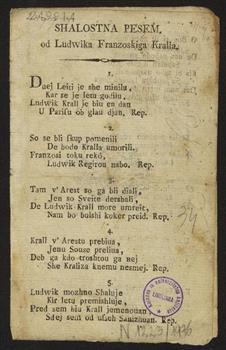 SHALOSTNA PESEM.
od Ludwika Franzoskiga Kralla.
1.
Duej Leici je she minilu,
Kar se je letu godilu,
Ludwik Krall je biu en dan
U Parisu ob glau djan. Rep.
2.
So se bli skup pomenili
De bodo Kralla umorili.
Franzosi toku rekó,
Ludwik Regirou nabo. Rep.
3.
Tam v' Arest so ga bli djali,
Jen so Sveite dershali,
De Ludwik Krall more umreit,
Nam bo bulshi koker preid. Rep.
4.
Krall v' Arestu prebiua,
Jenu Souse preliua,
Deb ga kdo troshtou ga nej
She Kraliza knemu nesmej. Rep.
5.
Ludwik mozhno Shaluje
Kir letu premishluje,
Pred sem biu Krall jemenouan,
Sdej sem od usseh Sanizhuan. Rep.